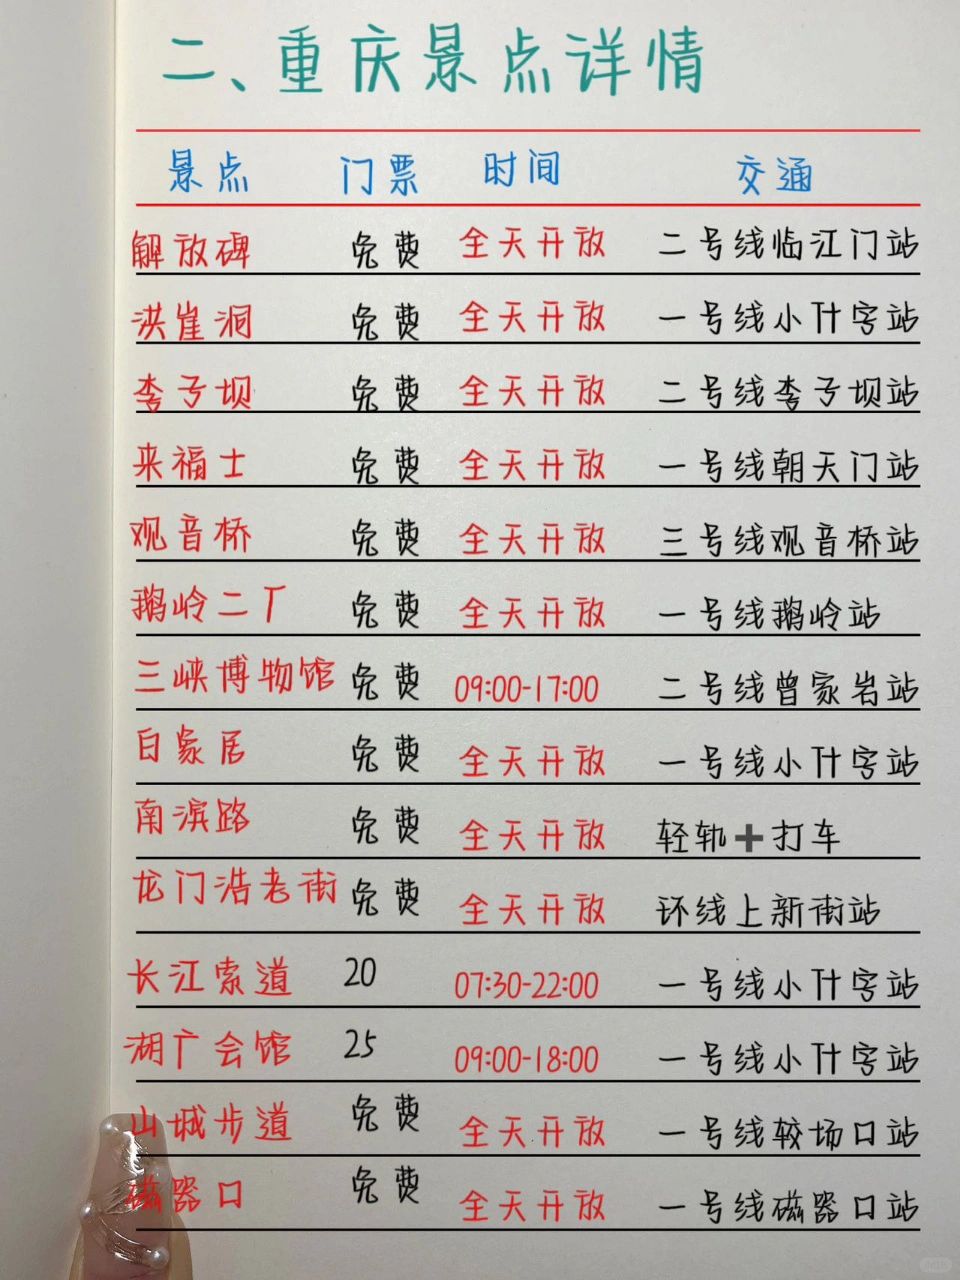 二、重庆景点详情
景点 门票 时间 交通
解放碑 免费 全天开放 二号线临江门站
洪崖洞 免费 全天开放 一号线小什字站
李子坝 免费 全天开放 二号线李子坝站
来福士 免费 全天开放 一号线朝天门站
观音桥 免费 全天开放 三号线观音桥站
鹅岭二厂 免费 全天开放 一号线鹅岭站
三峡博物馆 免费 09:00-17:00 二号线曾家岩站
白象居 免费 全天开放 一号线小什字站
南滨路 免费 全天开放 轻轨➕打车
龙门浩老街 免费 全天开放 环线上新街站
长江索道 20 07:30-22:00 一号线小什字站
湖广会馆 25 09:00-18:00 一号线小什字站
山城步道 免费 全天开放 一号线较场口站
磁器口 免费 全天开放 一号线磁器口站